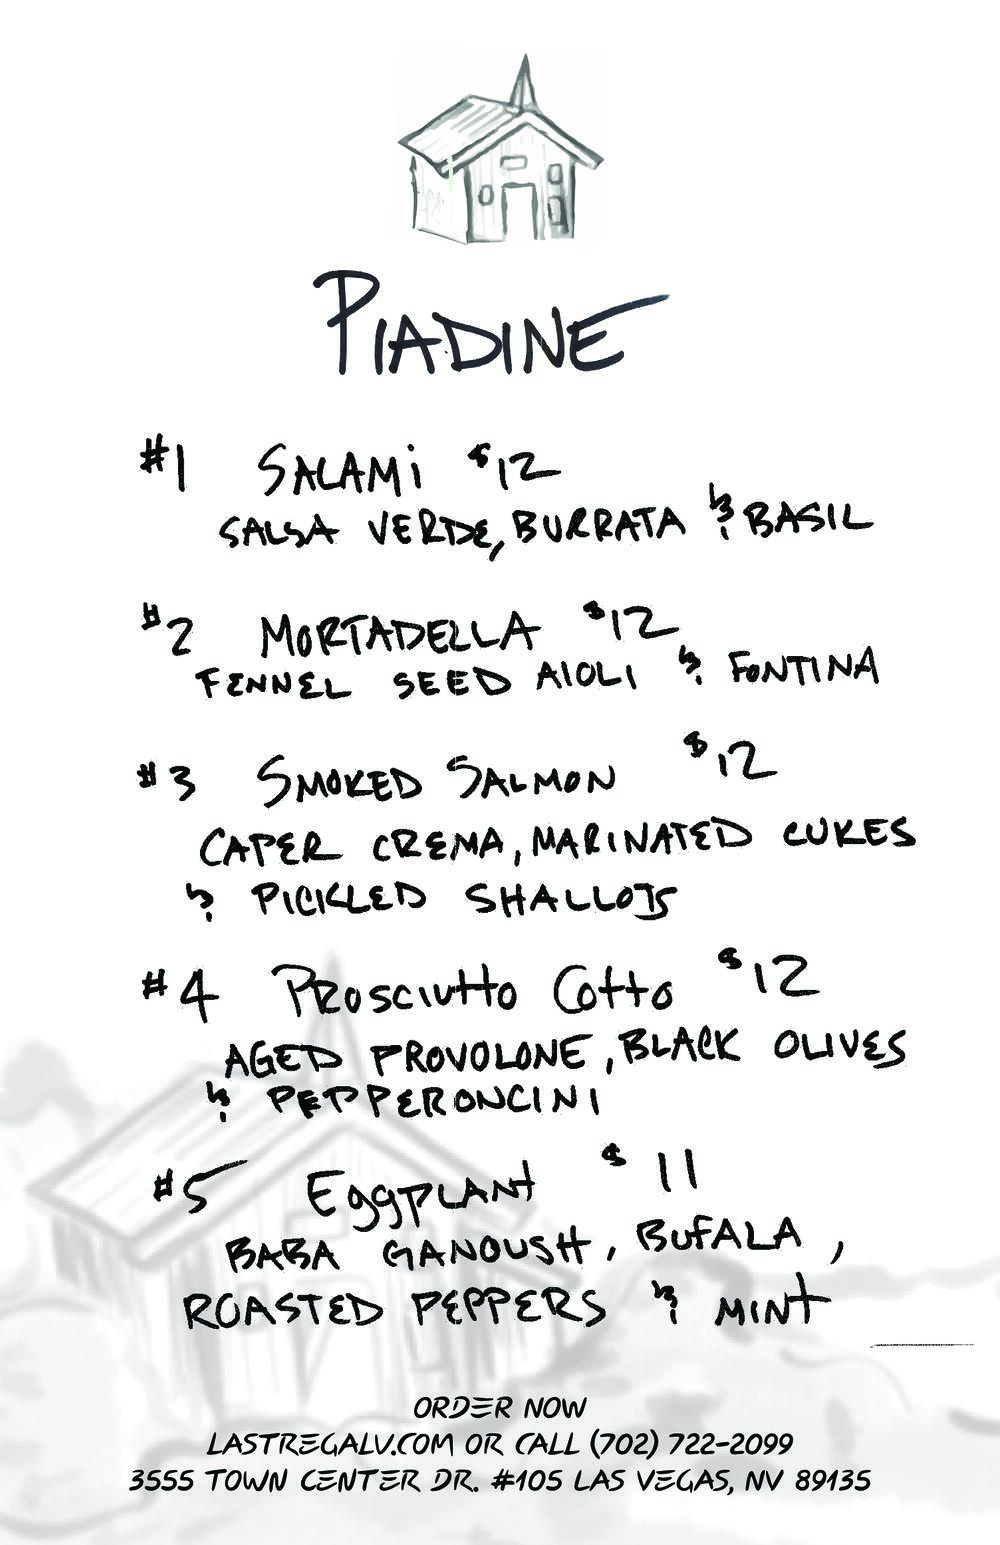 PIADINE
#1 SALAMi $12
SALSA VERDE, BURRATA & BASIL
#2 MORTADELLA $12
FENNEL SEED AIOLI & FONTINA
#3 SMOKED SALMON $12
CAPER CREMA, MARINATED CUKES
& PICKLED SHALLOTS
#4 PROSCIUTTO COTTO $12
AGED PROVOLONE, BLACK OLIVES
& PEPPERONCINI
#5 EggPLANT $11
BABA GANOUSH, BUFALA,
ROASTED PEPPERS & MINT
ORDER NOW
LASTREGALV.COM OR CALL (702) 722-2099
3555 TOWN CENTER DR. #105 LAS VEGAS, NV 89135